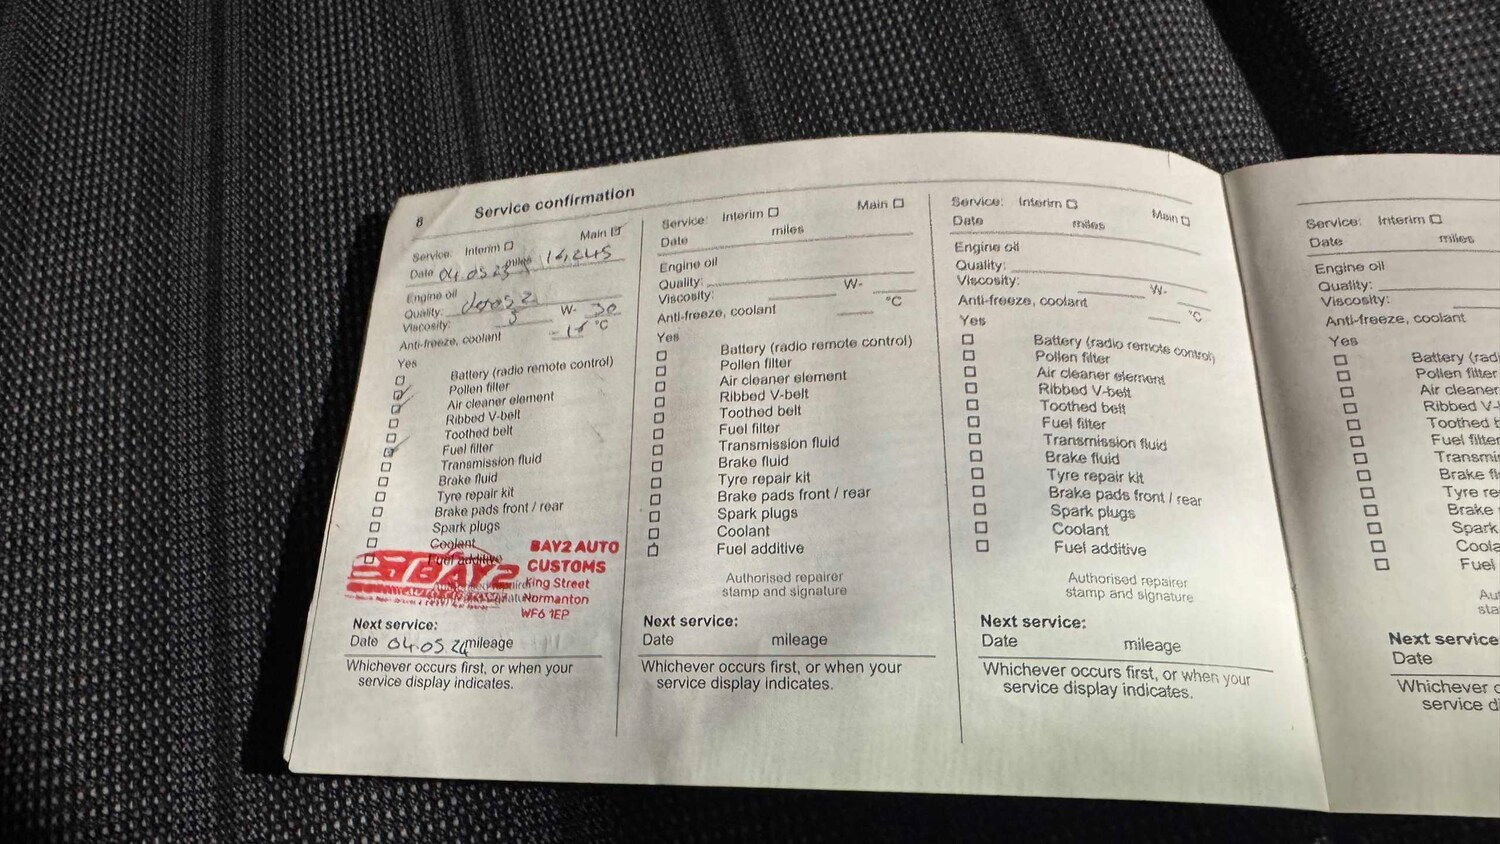 8
Service confirmation
Service: Interim ☐ Main ☑
Date 04.05.23 miles
Engine oil
Quality: dexos 2
Viscosity: 5 W- 30
Anti-freeze, coolant °C
Yes
☐ Battery (radio remote control)
☑ Pollen filter
☑ Air cleaner element
☐ Ribbed V-belt
☐ Toothed belt
☑ Fuel filter
☐ Transmission fluid
☐ Brake fluid
☐ Tyre repair kit
☐ Brake pads front / rear
☐ Spark plugs
☐ Coolant
☐ Fuel additive
BAY2
BAY2 AUTO
CUSTOMS
King Street
Normanton
WF6 1EP
Next service:
Date 04.05.24 mileage
Whichever occurs first, or when your
service display indicates.
Service: Interim ☐ Main ☐
Date miles
Engine oil
Quality:
Viscosity: W-
Anti-freeze, coolant °C
Yes
☐ Battery (radio remote control)
☐ Pollen filter
☐ Air cleaner element
☐ Ribbed V-belt
☐ Toothed belt
☐ Fuel filter
☐ Transmission fluid
☐ Brake fluid
☐ Tyre repair kit
☐ Brake pads front / rear
☐ Spark plugs
☐ Coolant
☐ Fuel additive
Authorised repairer
stamp and signature
Next service:
Date mileage
Whichever occurs first, or when your
service display indicates.
Service: Interim ☐ Main ☐
Date miles
Engine oil
Quality:
Viscosity: W-
Anti-freeze, coolant °C
Yes
☐ Battery (radio remote control)
☐ Pollen filter
☐ Air cleaner element
☐ Ribbed V-belt
☐ Toothed belt
☐ Fuel filter
☐ Transmission fluid
☐ Brake fluid
☐ Tyre repair kit
☐ Brake pads front / rear
☐ Spark plugs
☐ Coolant
☐ Fuel additive
Authorised repairer
stamp and signature
Next service:
Date mileage
Whichever occurs first, or when your
service display indicates.
Service: Interim ☐
Date miles
Engine oil
Quality:
Viscosity:
Anti-freeze, coolant
Yes
☐ Battery (radi
☐ Pollen filter
☐ Air cleaner
☐ Ribbed V-
☐ Toothed b
☐ Fuel filter
☐ Transmi
☐ Brake fl
☐ Tyre re
☐ Brake
☐ Spark
☐ Coola
☐ Fuel
Au
sta
Next service
Date
Whichever
service di